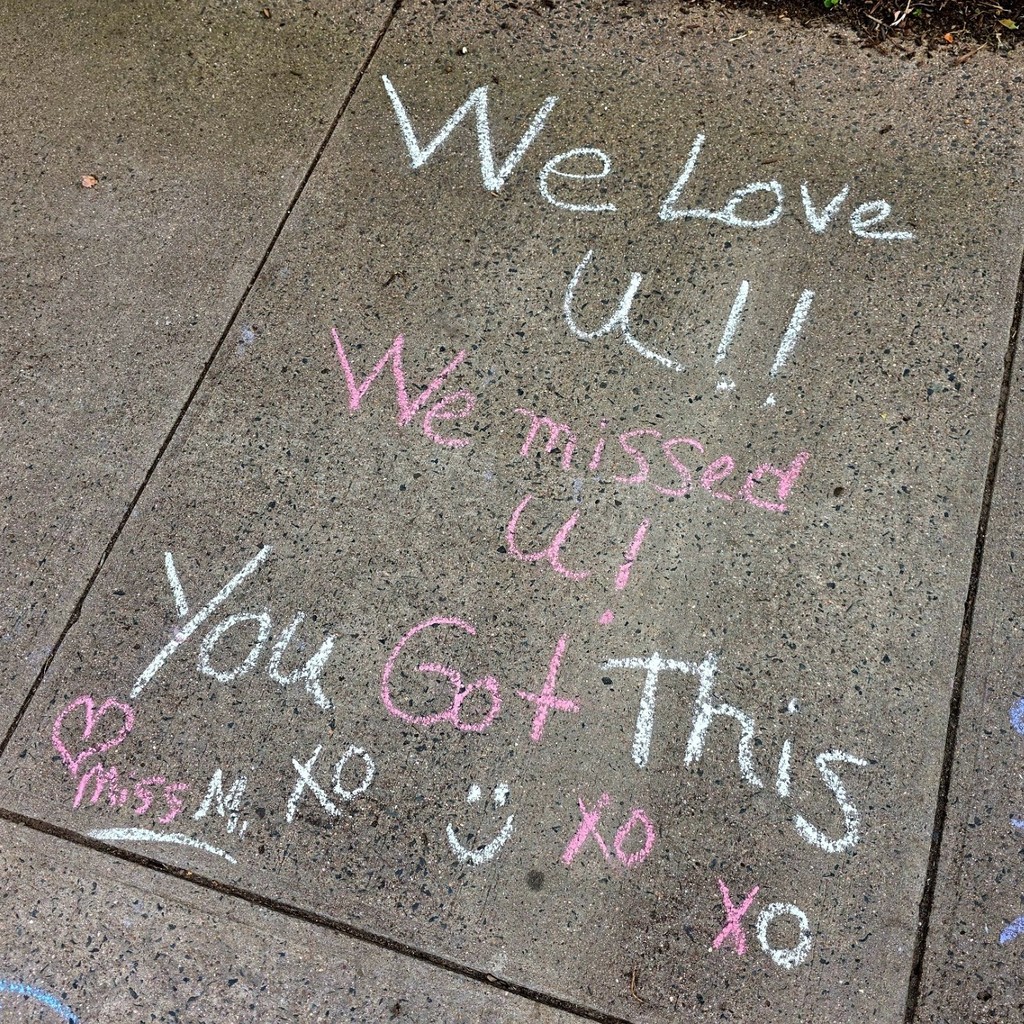 We Love
U!!
We missed
U!
You Got This
Miss M. XO
XO
XO